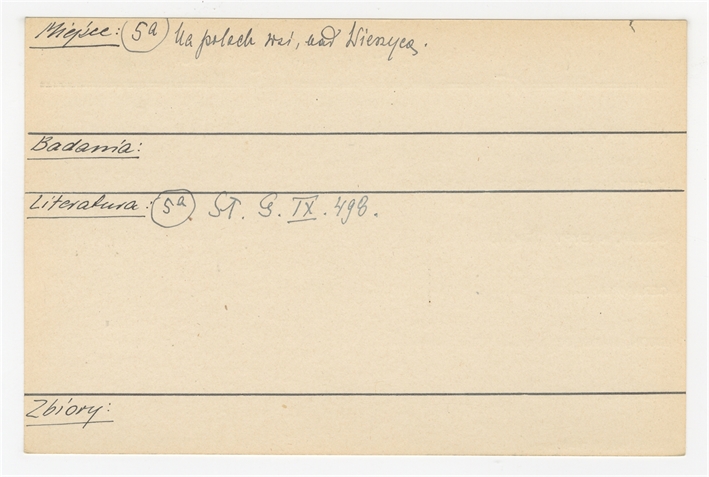 Miejsce: 5a Na polach wsi, nad Wierzycą.
Badania:
Literatura: 5a. Sł. G. IX. 498.
Zbiory: